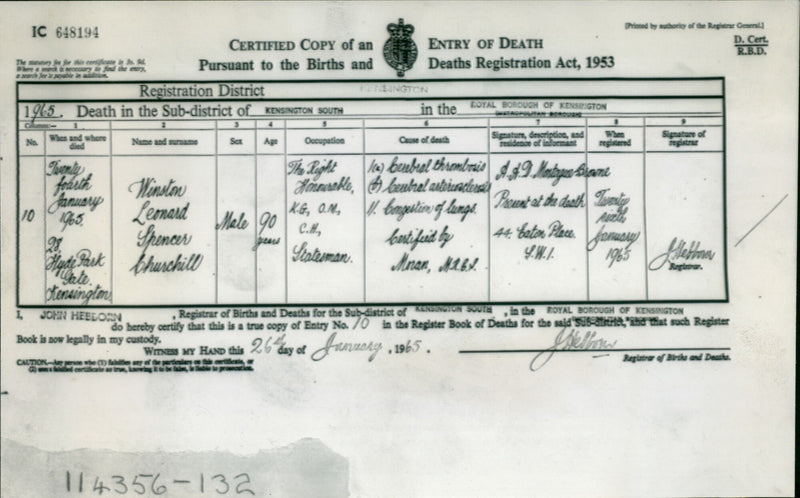 IC 648194
[Printed by authority of the Registrar General.]
CERTIFIED COPY of an ENTRY OF DEATH
D. Cert.
R.B.D.
The statutory fee for this certificate is 3s. 9d.
Where a search is necessary to find the entry,
a search fee is payable in addition.
Pursuant to the Births and Deaths Registration Act, 1953
Registration District KENSINGTON
1965. Death in the Sub-district of KENSINGTON SOUTH in the ROYAL BOROUGH OF KENSINGTON
(METROPOLITAN BOROUGH)
Columns:— 1 2 3 4 5 6 7 8 9
No. When and where died Name and surname Sex Age Occupation Cause of death Signature, description, and residence of informant When registered Signature of registrar
10
Twenty
fourth
January
1965.
28,
Hyde Park
Gate.
Kensington
Winston
Leonard
Spencer
Churchill
Male
90
years
The Right
Honourable,
K.G., O.M.,
C.H.,
Statesman.
I(a) Cerebral thrombosis
(b) Cerebral arteriosclerosis
II. Congestion of lungs.
Certified by
Moran, M.R.C.S.
A.A.D. Montague-Browne
Present at the death
44. Eaton Place.
S.W.1.
Twenty
sixth
January
1965
J Hebborn
Registrar.
I, JOHN HEBBORN , Registrar of Births and Deaths for the Sub-district of KENSINGTON SOUTH , in the ROYAL BOROUGH OF KENSINGTON
do hereby certify that this is a true copy of Entry No. 10 in the Register Book of Deaths for the said Sub-district, and that such Register
Book is now legally in my custody.
WITNESS MY HAND this 26th day of January , 1965 .
J Hebborn
Registrar of Births and Deaths.
CAUTION.—Any person who (1) falsifies any of the particulars on this certificate, or
(2) uses a falsified certificate as true, knowing it to be false, is liable to prosecution.
114356-132